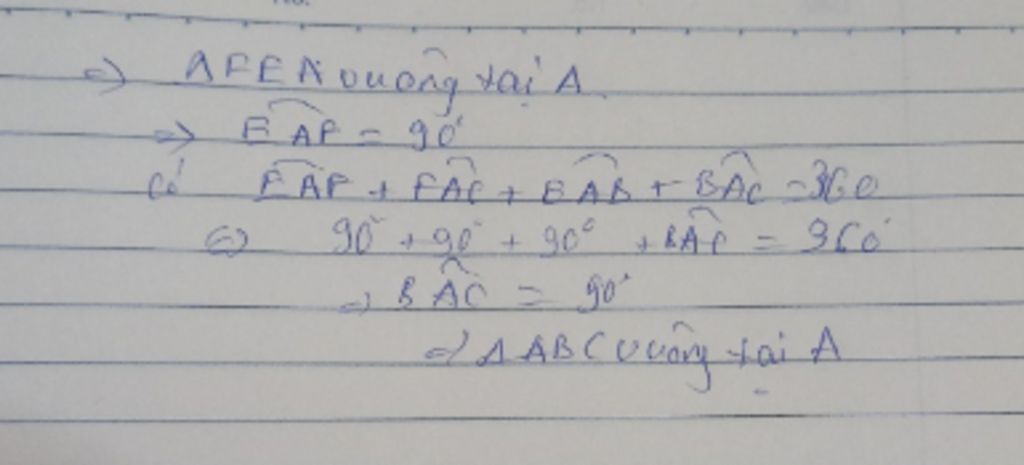 => ΔFEA vuông tại A
=> EAF = 90°
Có EAF + FAC + EAB + BAC = 360
<=> 90° + 90° + 90° + BAC = 360°
=> BAC = 90°
=> Δ ABC vuông tại A